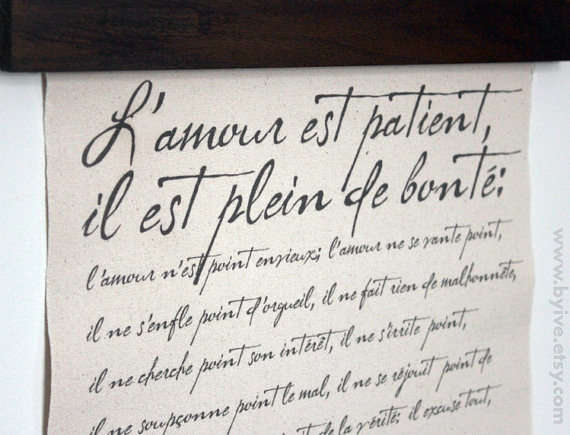 L'amour est patient,
il est plein de bonté;
l'amour n'est point envieux; l'amour ne se vante point,
il ne s'enfle point d'orgueil, il ne fait rien de malhonnête,
il ne cherche point son intérêt, il ne s'irrite point,
il ne soupçonne point le mal, il ne se réjouit point de
de la vérité: il excuse tout,
www.byive.etsy.com